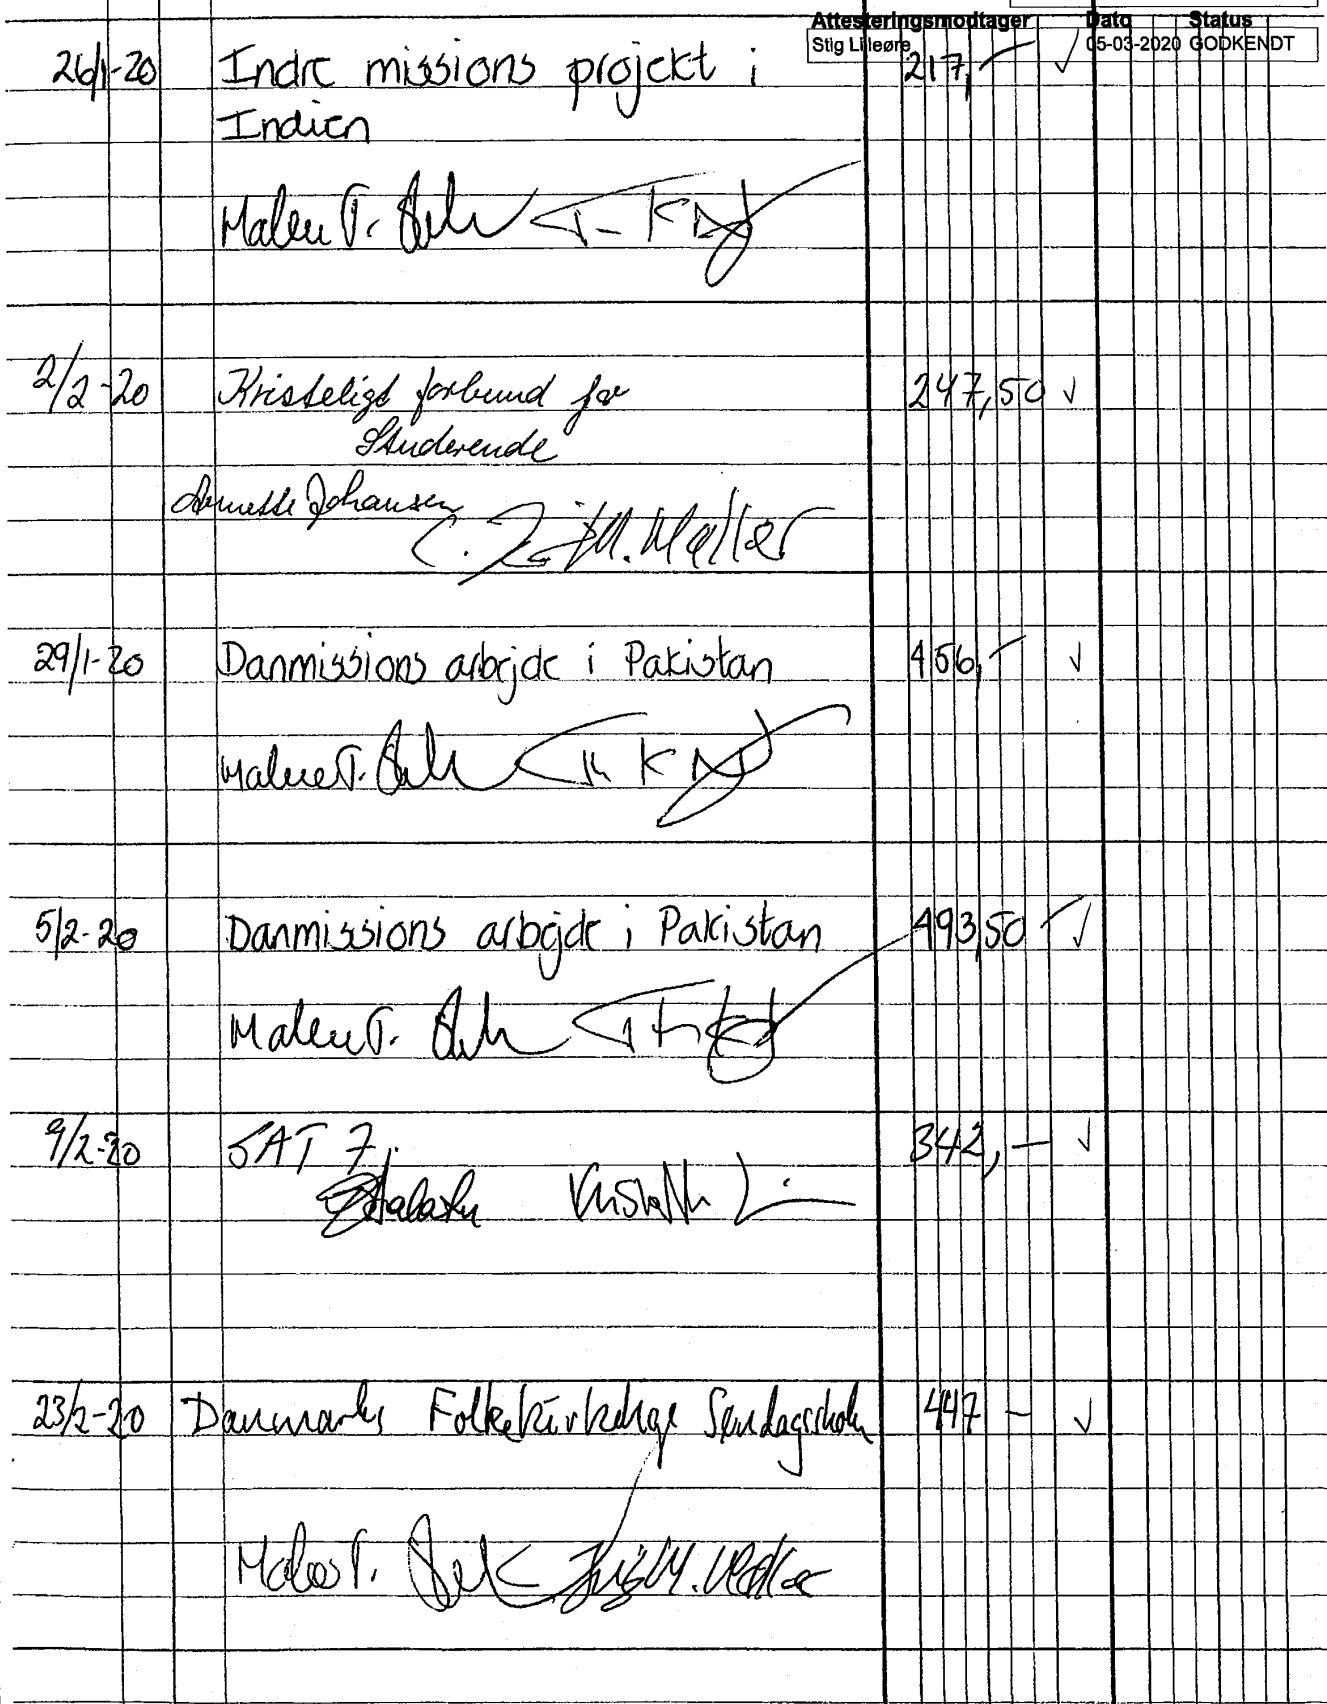 Attesteringsmodtager Dato Status
Stig Lilleøre 05-03-2020 GODKENDT
26/1-20 Indre missions projekt i 217,-
Indien
Malene T.
2/2-20 Kristeligt forbund for 247,50
Studerende
Annette Johansen
M. Møller
29/1-20 Danmissions arbejde i Pakistan 456,-
Malene T.
5/2-20 Danmissions arbejde i Pakistan 493,50
Malene T.
9/2-20 SAT 7. 342,-
23/2-20 Danmarks Folkekirkelige Søndagsskole 447 -
Malene T. M. Møller